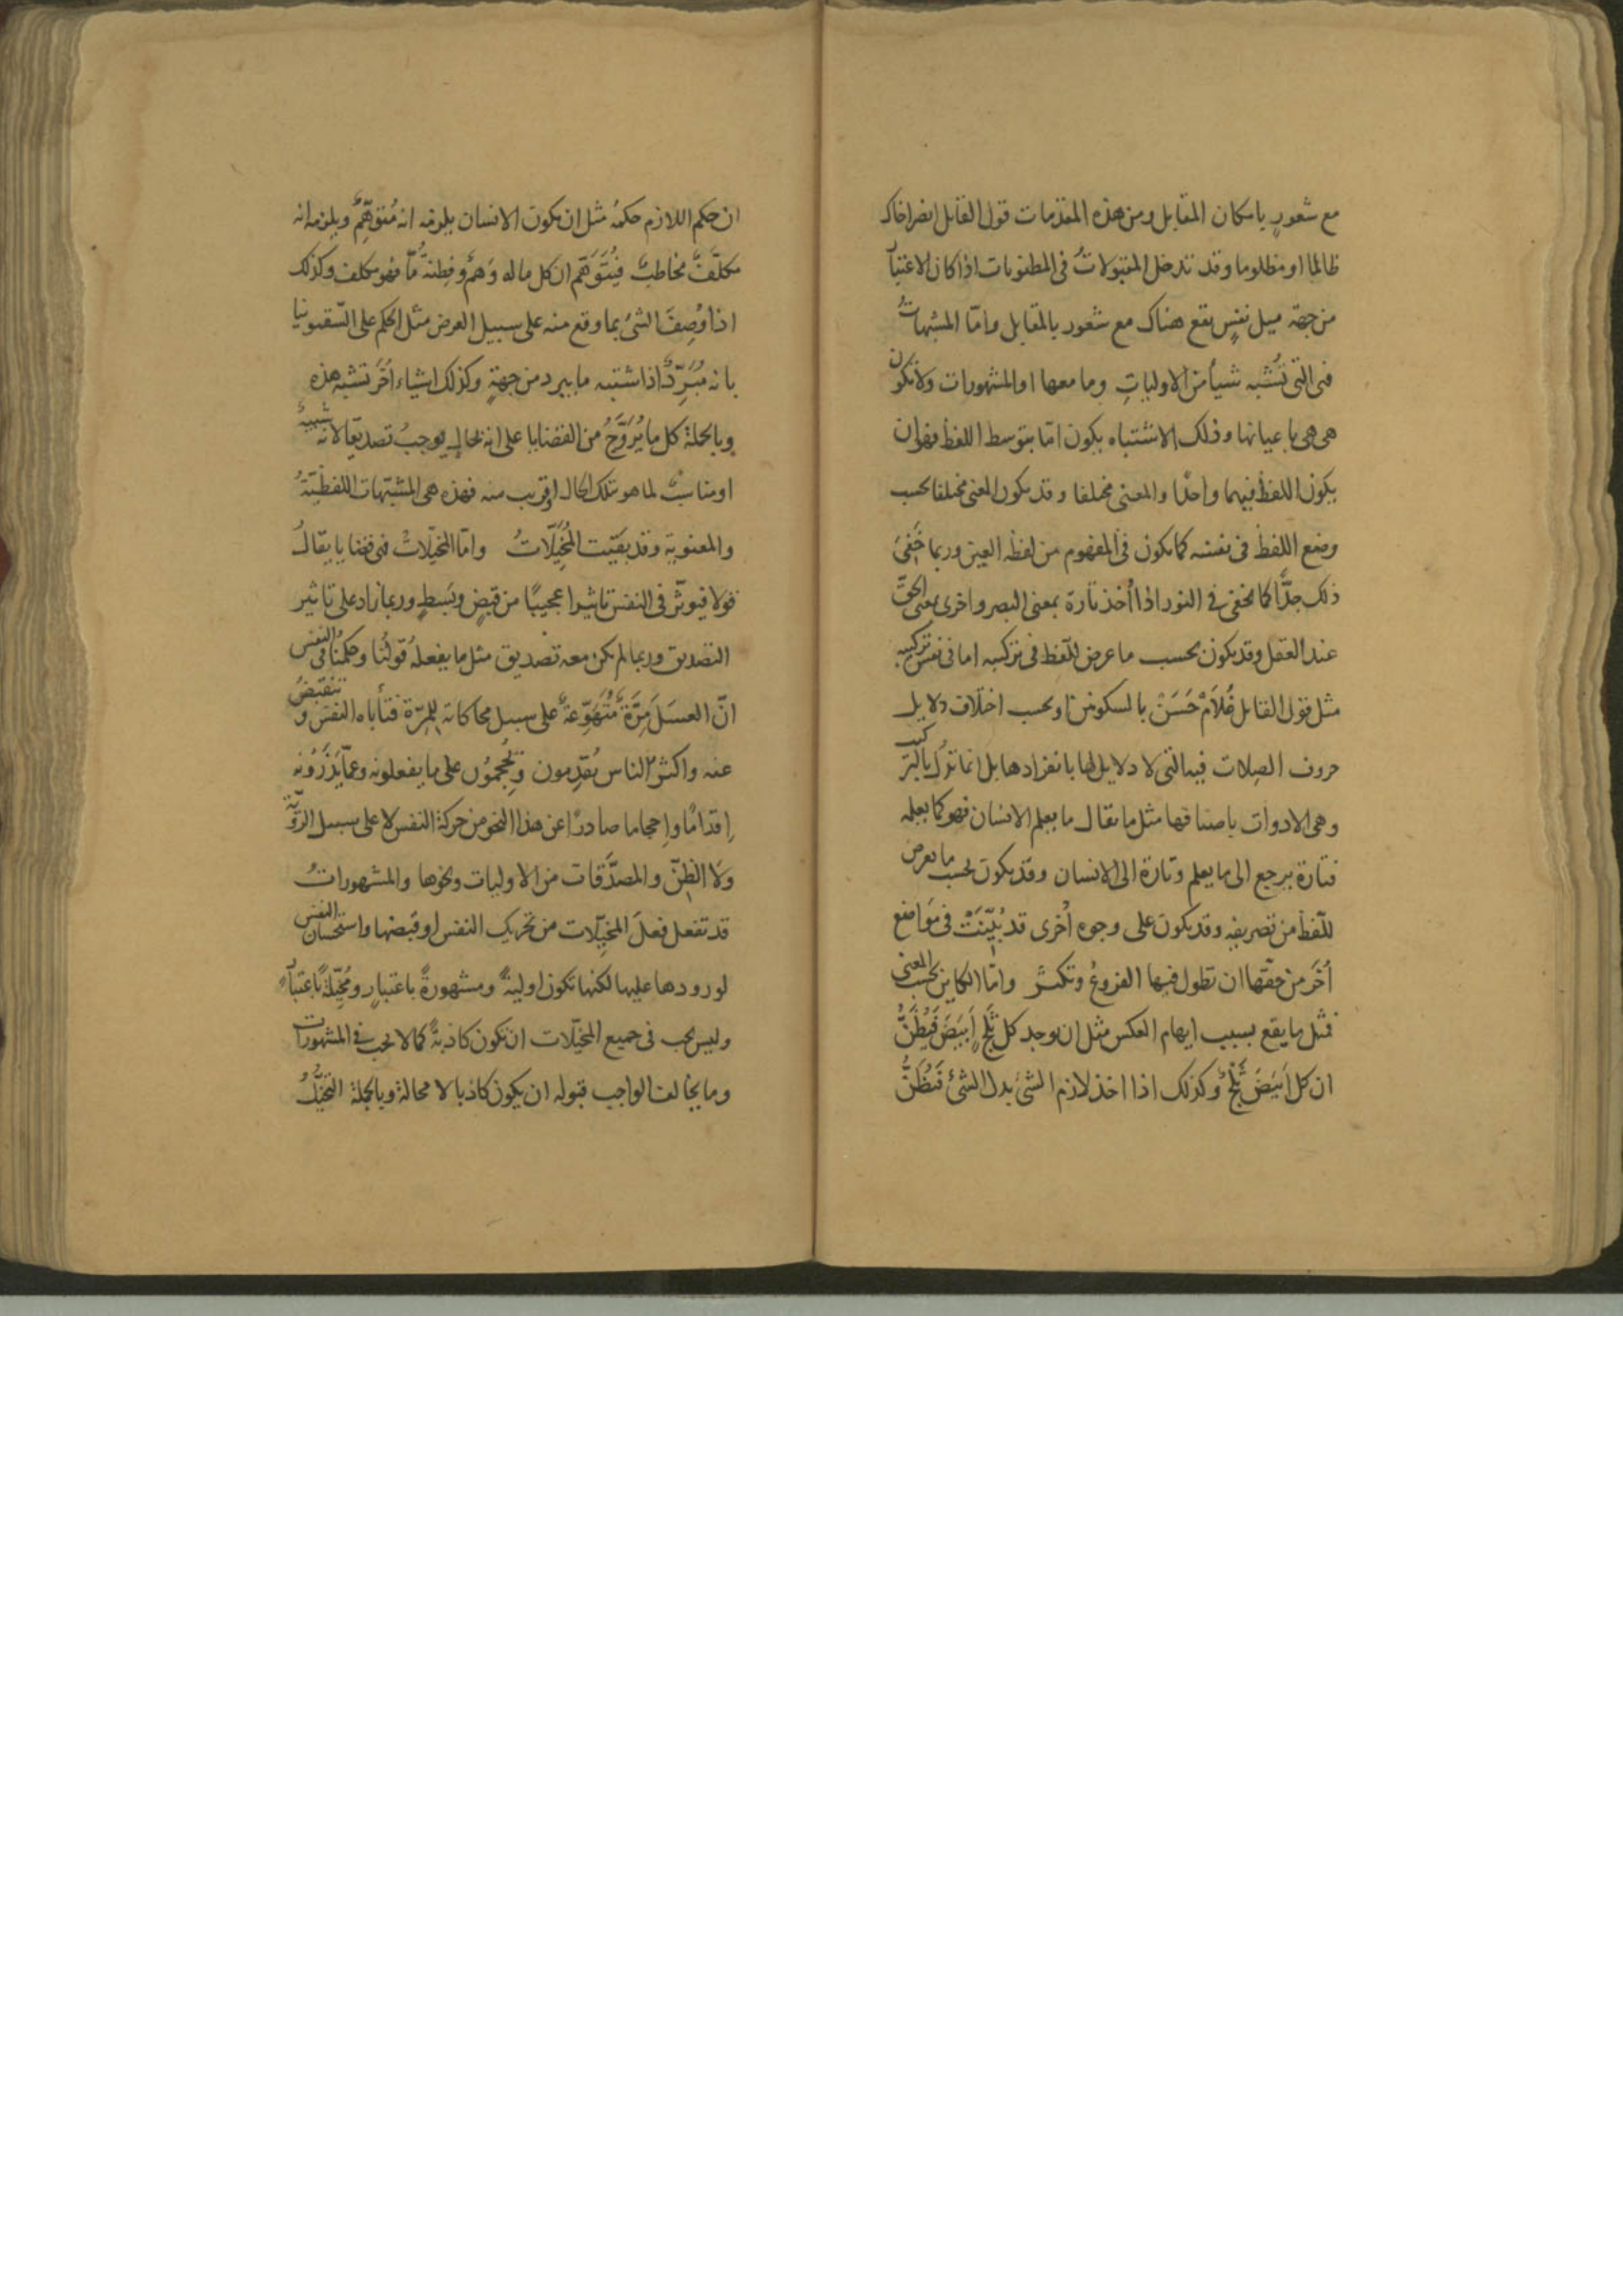 مع شعور بامكان المقابل ومن هذه المقدمات قول القائل انصر اخاك
ظالما او مظلوما وقد تدخل المقبولات في المظنونات اذا كان الاعتبار
من جهة ميل نفس يقع هناك مع شعور بالمقابل وامّا المشبهات
فهي التي تُشبه شيأ من الاوليات وما معها او المشهورات ولا تكون
هي هي باعيانها وذلك الاشتباه يكون امّا بتوسط اللفظ فهو ان
يكون اللفظ فيهما واحدًا والمعنى مختلفا وقد يكون المعنى مختلفا بحسب
وضع اللفظ في نفسه كما يكون في المفهوم من لفظه العين وربما خَفِيَ
ذلك جدًّا كما يخفى في النور اذا اُخذ تارة بمعنى البصر واخرى بمعنى الحقّ
عند العقل وقد يكون بحسب ما عرض للّفظ في تركيبه اما في نفس تركيبه
مثل قول القائل غُلَامْ حَسَنْ بالسكونين او بحسب اختلاف دلايل
حروف الصِلات فيه التي لا دلايل لها بانفرادها بل انما تدل بالتركيب
وهي الادوات باصنافها مثل ما يقال ما يعلم الانسان فهو كما يعلمه
فتارة يرجع الى ما يعلم وتارة الى الانسان وقد يكون بحسب ما يعرض
للّفظ من تصريفه وقد يكون على وجوه اُخرى قد بُيّنَتْ في مَوَاضع
اُخَر من حقّها ان تطول فيها الفروعُ وتكثر وامّا الكاين بحسب المعنى
فمثل ما يقع بسبب ايهام العكس مثل ان يوجد كل ثَلْجٍ اَبيَضَ فَيُظَنُّ
ان كل اَبيَضَ ثَلْجٌ وكذلك اذا اخذ لازم الشئ بدل الشئ فَيُظَنُّ
ان حكم اللازم حكمهُ مثل ان يكون الانسان يلزمه انه مُتوَهِّمٌ ويلزمه انه
مكلَّفٌ مخاطبٌ فيُتَوَهَّم ان كل ما له وَهمٌ وفِطنةٌ مّا فهو مكلف وكذلك
اذا وُصِفَ الشئ بما وقع منه على سبيل العرض مثل الحكم على السّقمونيا
بانه مُبَرِّدٌ اذا اشتبه ما يبرد من جهةٍ وكذلك اشياء اُخَر تشبه هذه
وبالجملة كل ما يُرَوَّجُ من القضايا على انه بحالٍ يوجب تصديقا لانه شبيهٌ
او مناسبٌ لما هو بتلك الحال او قريب منه فهذه هي المشبّهات اللفظيّةُ
والمعنوية وقد بقيت المُخيّلاتُ وامّا المخيّلاتُ فهي قضايا يقالُ
قولا فيوثّر في النفس تاثيرا عجيبًا من قبضٍ وبَسطٍ وربما زاد على تاثير
التصديق وربما لم يكن معه تصديق مثل ما يفعله قولُنا وحكمُنا في النفس
انّ العسَلَ مِرَّةٌ مُتَهَوِّعةٌ على سبيل محاكاته للمِرّة فتأباه النفس وتنقبضُ
عنه واكثر الناس يُقدِمون ويُحجِمُون على ما يفعلونه وعمّا يَذَرُونه
اِقدامًا واِحجاما صادرًا عن هذا النحو من حركة النفس لا على سبيل الرَّويّة
ولا الظنّ والمصدَّقات من الاوليات ونحوها والمشهوراتُ
قد تفعل فعلَ المخيّلات من تحريك النفس او قبضها واستحسان النفس
لورودها عليها لكنها تكون اوليةً ومشهورةً باعتبارٍ ومُخيّلةً باعتبارٍ
وليس يجب في جميع المخيّلات ان تكون كاذبةً كما لا يجب في المشهورات
وما يخالف الواجب قبوله ان يكون كاذبا لا محالة وبالجملة التخيُّلُ